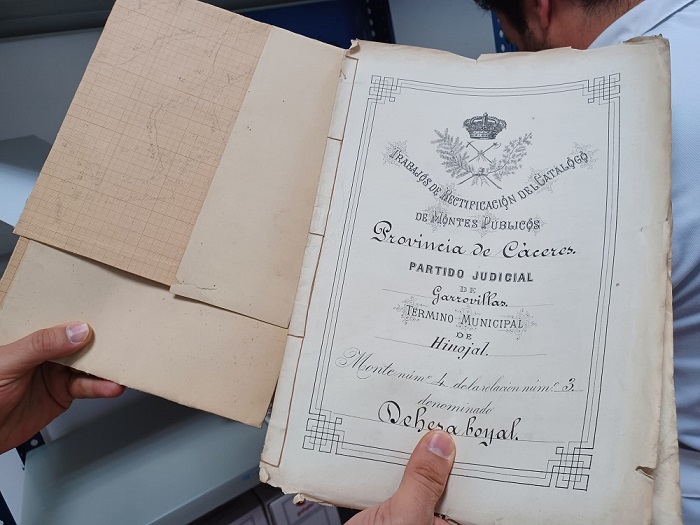 TRABAJOS DE RECTIFICACIÓN DEL CATALÓGO
DE MONTES PUBLICOS
Provincia de Càceres.
PARTIDO JUDICIAL
DE
Garrovillas.
TERMINO MUNICIPAL
DE
Hinojal.
Monte núm.º 4 de la relación núm.º 3.
denominado
Dehesa boyal.